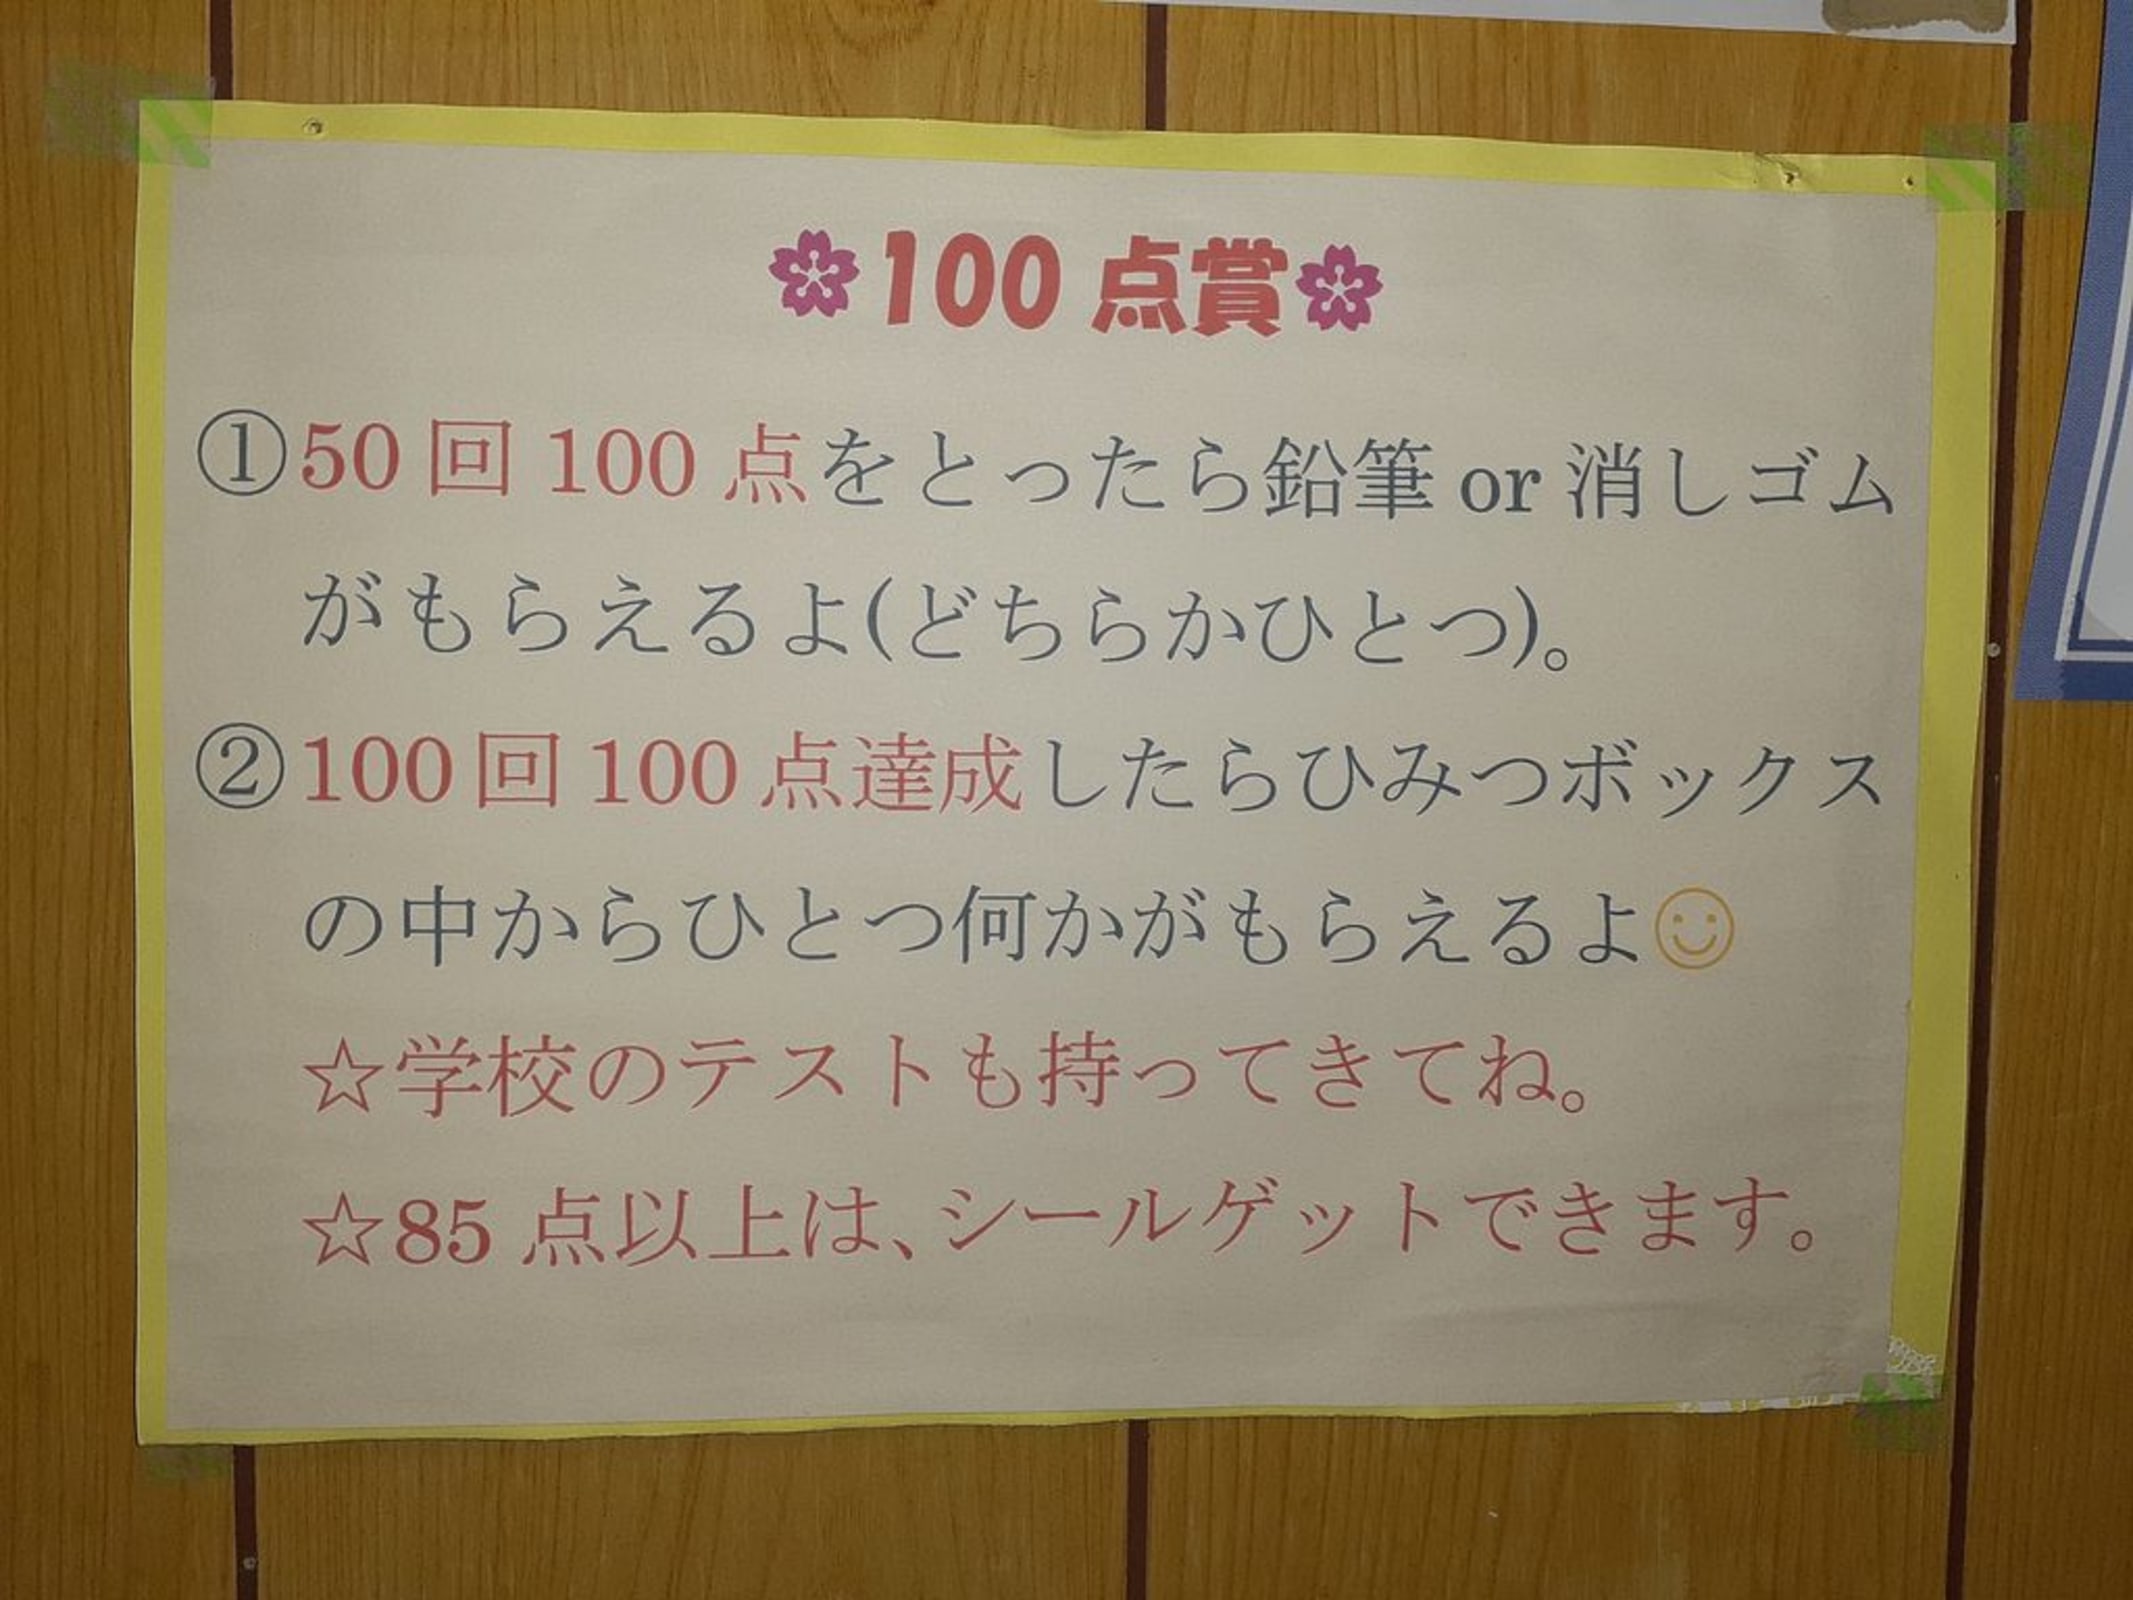 🌸100点賞🌸
①50回100点をとったら鉛筆or消しゴム
がもらえるよ(どちらかひとつ)。
②100回100点達成したらひみつボックス
の中からひとつ何かがもらえるよ☺
☆学校のテストも持ってきてね。
☆85点以上は、シールゲットできます。